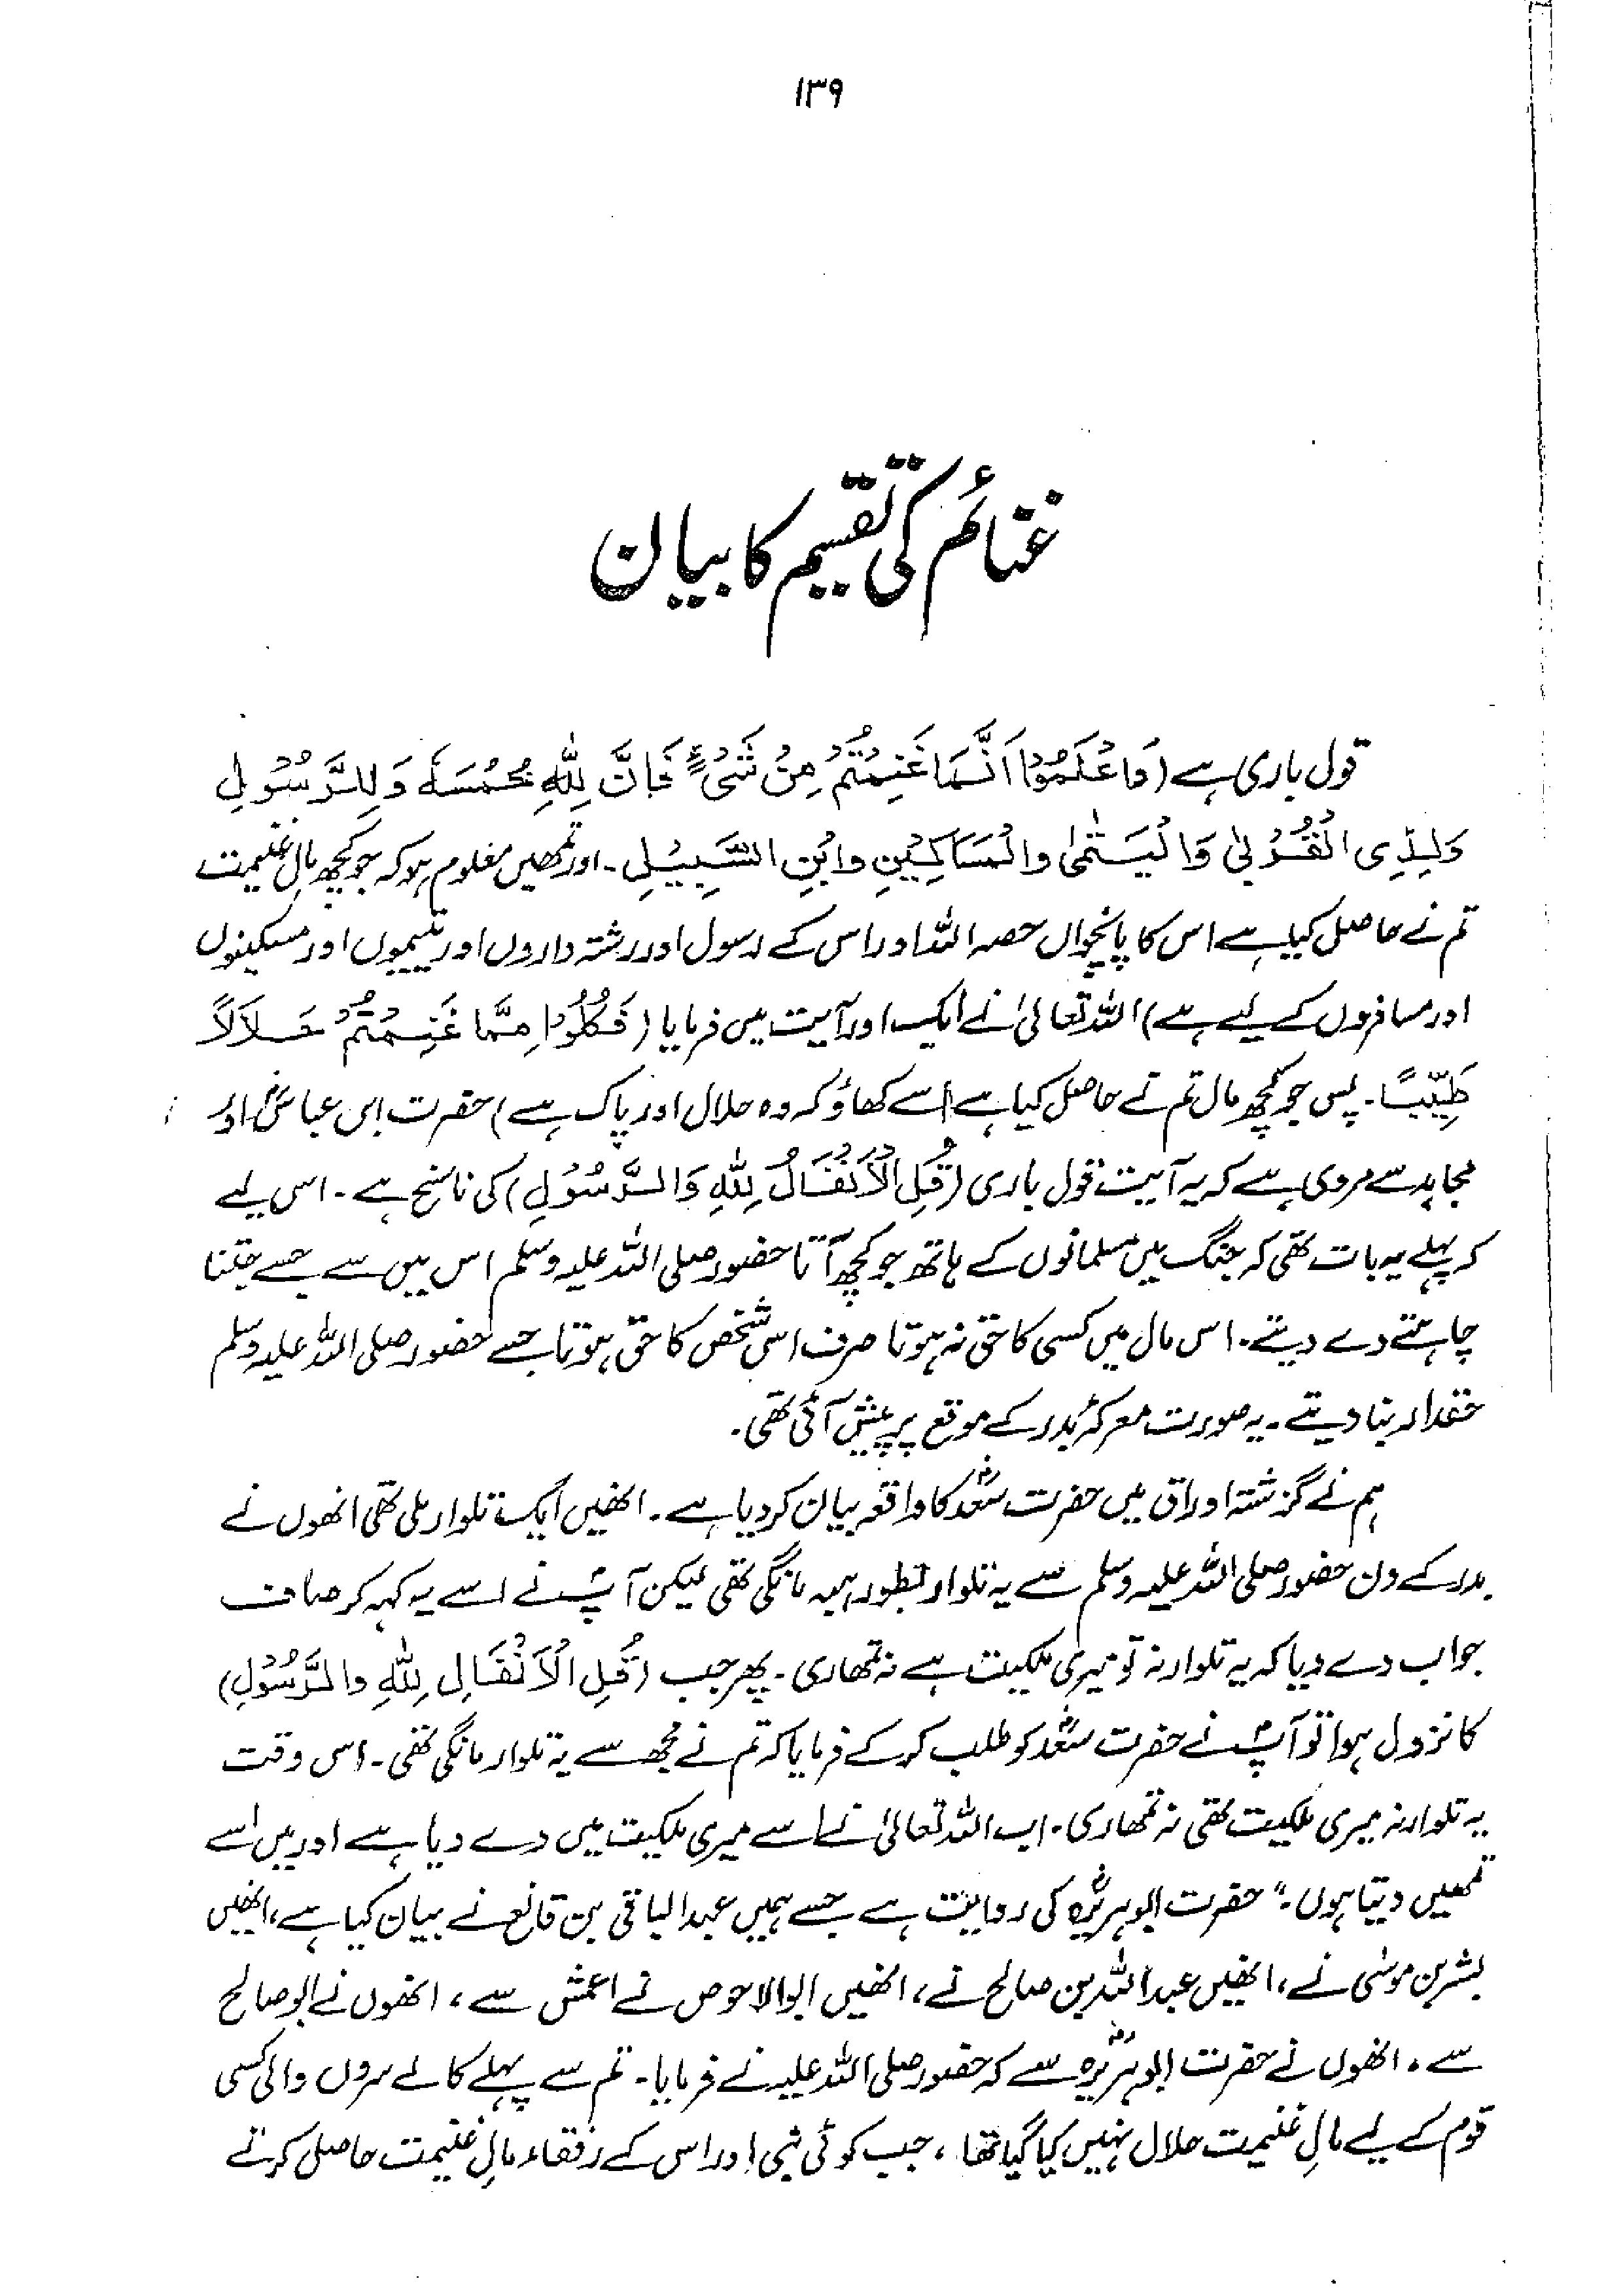 ۱۳۹
غنائم کی تقسیم کا بیان
قول باری ہے (وَاعْلَمُوْا اَنَّمَا غَنِمْتُمْ مِنْ شَیْءٍ فَاِنَّ لِلّٰهِ خُمُسَهٗ وَ لِلرَّسُوْلِ
وَلِذِی الْقُرْبٰی وَالْیَتٰمٰی والْمَسَاکِیْنِ وابْنِ السَّبِیْلِ۔ اور تمھیں معلوم ہو کہ جو کچھ مالِ غنیمت
تم نے حاصل کیا ہے اس کا پانچواں حصہ اللہ اور اس کے رسول اور رشتہ داروں اور یتیموں اور مسکینوں
اور مسافروں کے لیے ہے) اللہ تعالیٰ نے ایک اور آیت میں فرمایا (فَکُلُوْا مِمَّا غَنِمْتُمْ حَلَالًا
طَیِّبًا۔ پس جو کچھ مال تم نے حاصل کیا ہے اسے کھاؤ کہ وہ حلال اور پاک ہے) حضرت ابن عباسؓ اور
مجاہد سے مروی ہے کہ یہ آیت قول باری (قُلِ الْاَنْفَالُ لِلّٰهِ وَالرَّسُوْلِ) کی ناسخ ہے۔ اس لیے
کہ پہلے یہ بات تھی کہ جنگ میں مسلمانوں کے ہاتھ جو کچھ آتا حضور صلی اللہ علیہ وسلم اس میں سے جسے جتنا
چاہتے دے دیتے۔ اس مال میں کسی کا حق نہ ہوتا صرف اس شخص کا حق ہوتا جسے حضور صلی اللہ علیہ وسلم
حقدار بنا دیتے۔ یہ صورت معرکۂ بدر کے موقع پر پیش آئی تھی۔
ہم نے گزشتہ اوراق میں حضرت سعدؓ کا واقعہ بیان کر دیا ہے۔ انھیں ایک تلوار ملی تھی انھوں نے
بدر کے دن حضور صلی اللہ علیہ وسلم سے یہ تلوار بطور ہبہ مانگی تھی لیکن آپؐ نے اسے یہ کہہ کر صاف
جواب دے دیا کہ یہ تلوار نہ تو میری ملکیت ہے نہ تمھاری۔ پھر جب (قُلِ الْاَنْفَالِ لِلّٰهِ والرَّسُوْلِ)
کا نزول ہوا تو آپؐ نے حضرت سعدؓ کو طلب کر کے فرمایا کہ تم نے مجھ سے یہ تلوار مانگی تھی۔ اس وقت
یہ تلوار نہ میری ملکیت تھی نہ تمھاری۔ اب اللہ تعالیٰ نے اسے میری ملکیت میں دے دیا ہے اور میں اسے
تمھیں دیتا ہوں۔" حضرت ابوہریرہؓ کی روایت ہے جسے ہمیں عبدالباقی بن قانع نے بیان کیا ہے، انھیں
بشر بن موسٰی نے، انھیں عبداللہ بن صالح نے، انھیں ابوالاحوص نے اعمش سے، انھوں نے ابوصالح
سے، انھوں نے حضرت ابوہریرہؓ سے کہ حضور صلی اللہ علیہ نے فرمایا۔ تم سے پہلے کالے سروں والی کسی
قوم کے لیے مالِ غنیمت حلال نہیں کیا گیا تھا، جب کوئی نبی اور اس کے رفقاء مالِ غنیمت حاصل کرتے